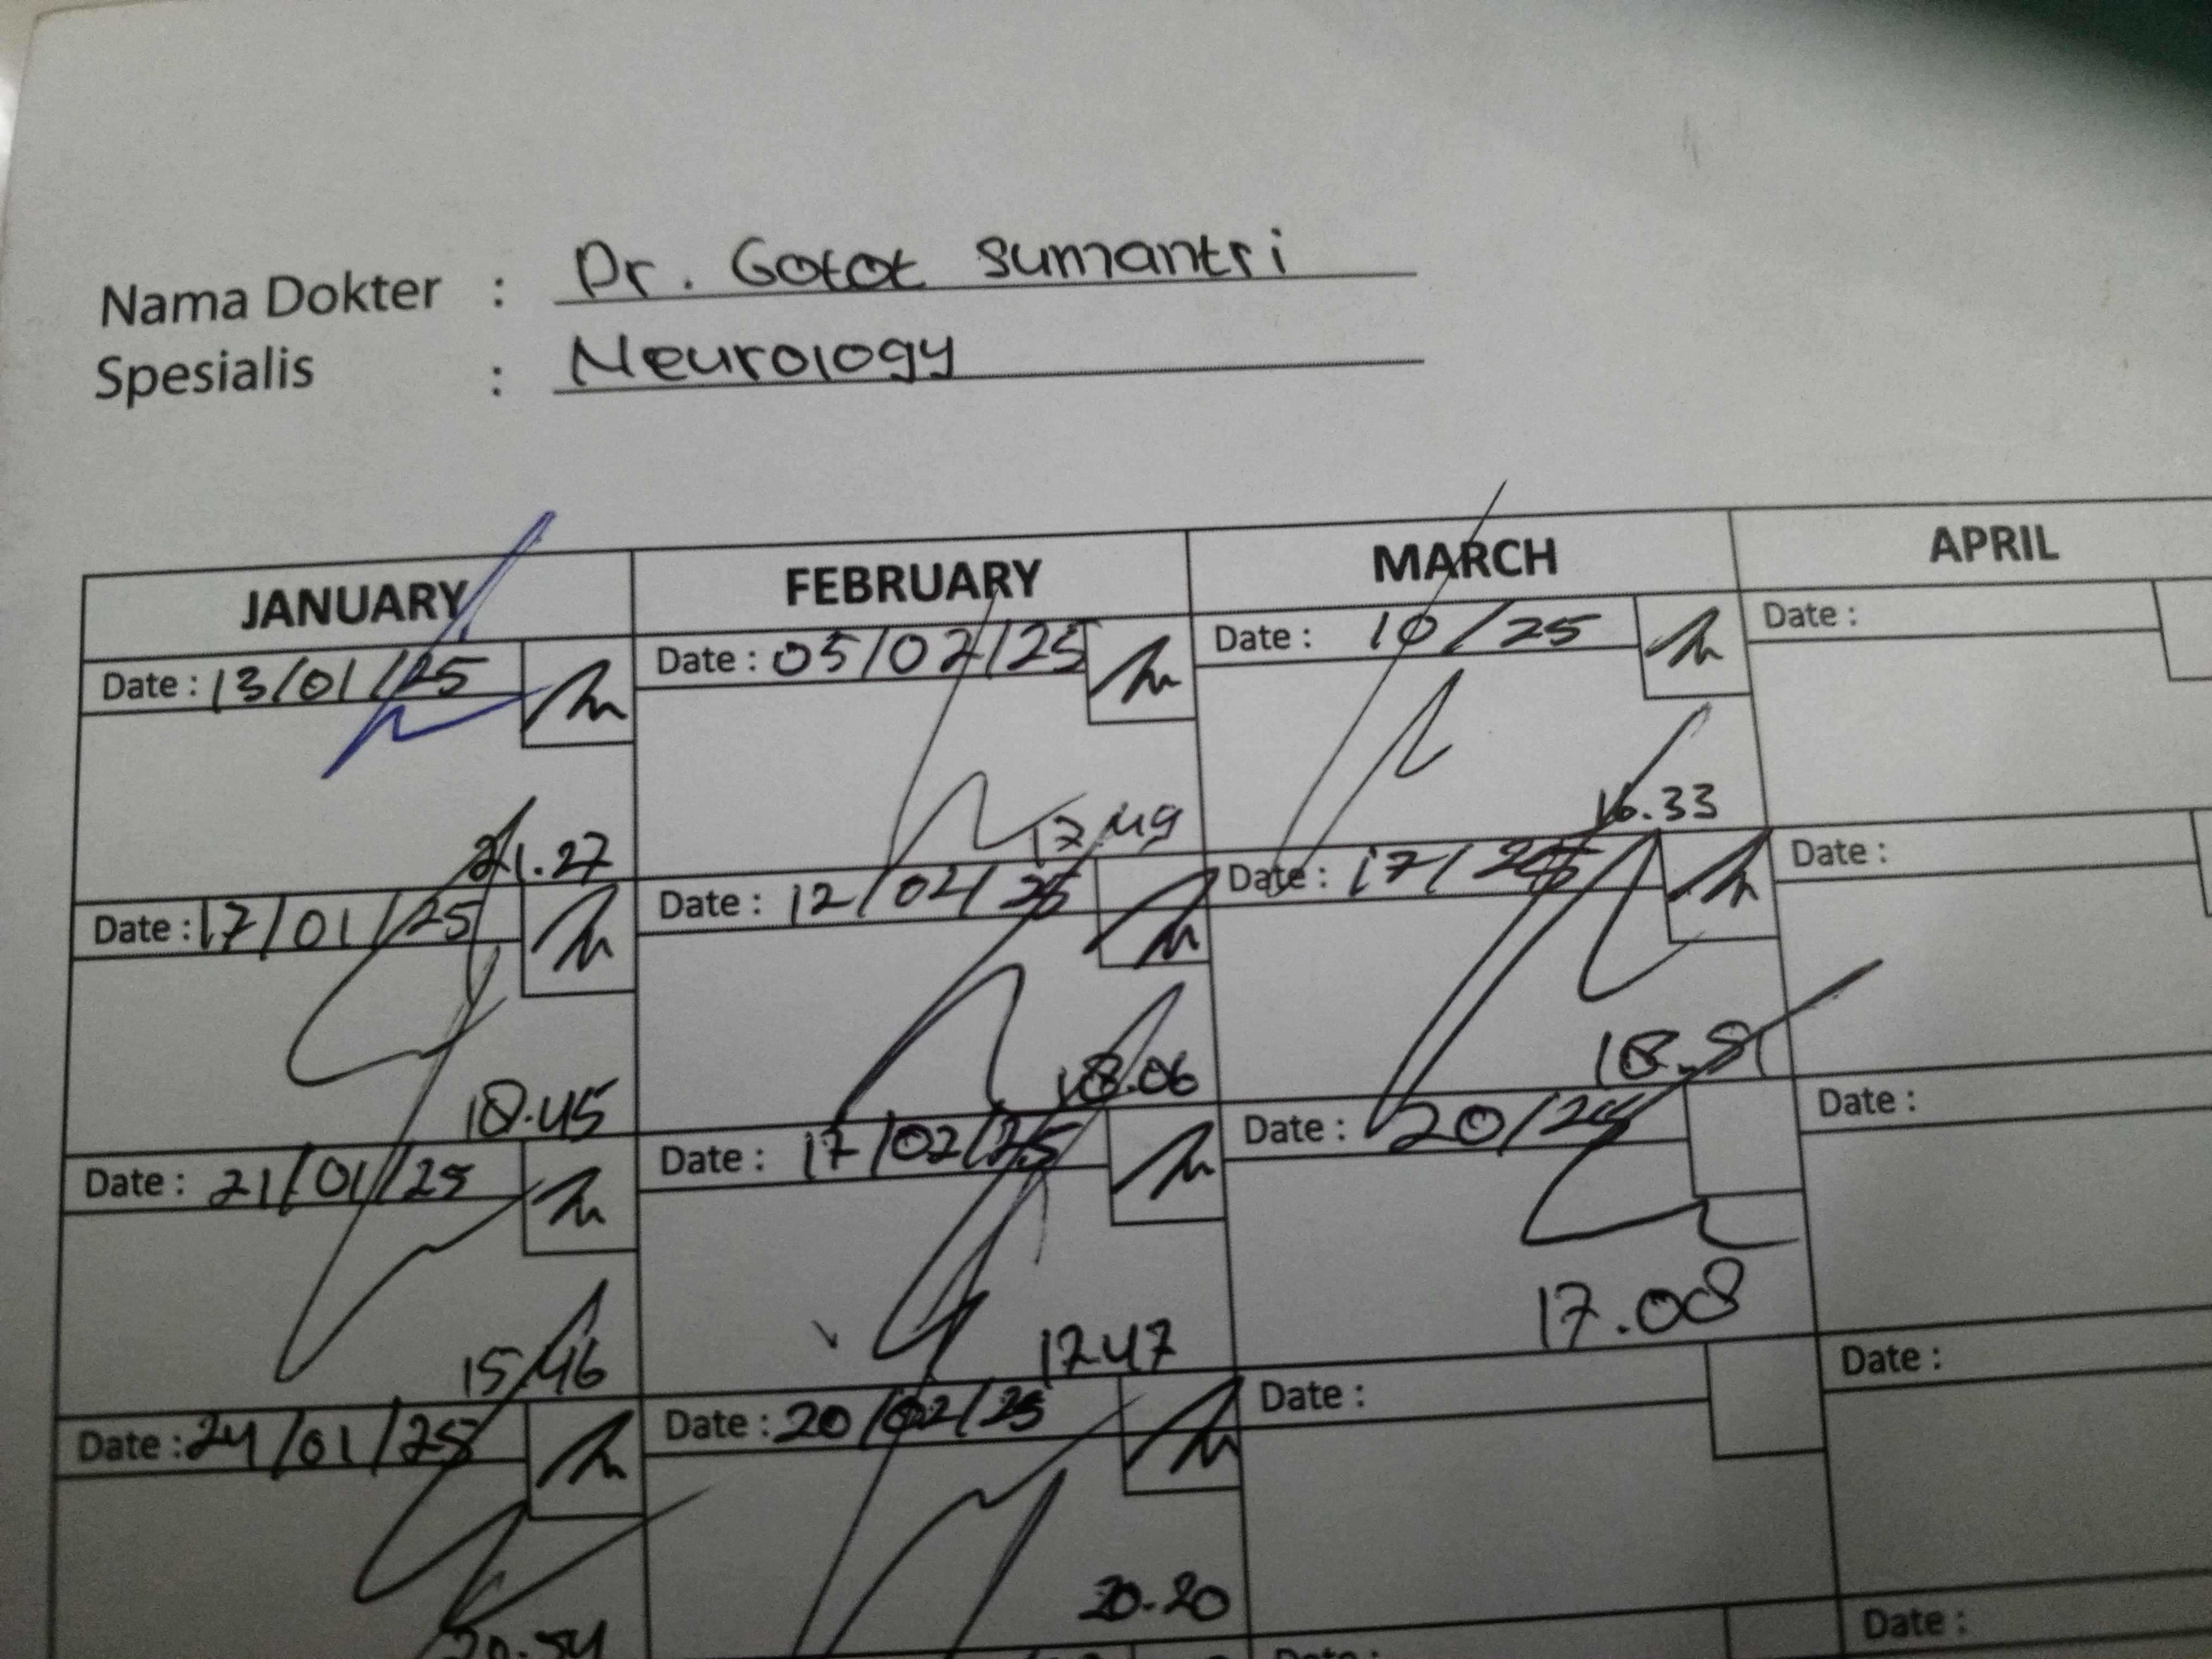 Nama Dokter : Dr. Gotot Sumantri
Spesialis : Neurology
JANUARY FEBRUARY MARCH APRIL
Date : 13/01/25 Date : 05/02/25 Date : 10/25 Date :
21.27 17.49 16.33
Date : 17/01/25 Date : 12/02/25 Date : 17/25 Date :
18.45 18.06
Date : 21/01/25 Date : 17/02/25 Date : 20/25 Date :
15.46 17.47 17.08
Date : 24/01/25 Date : 20/02/25 Date : Date :
20.54 20.20
Date : Date :